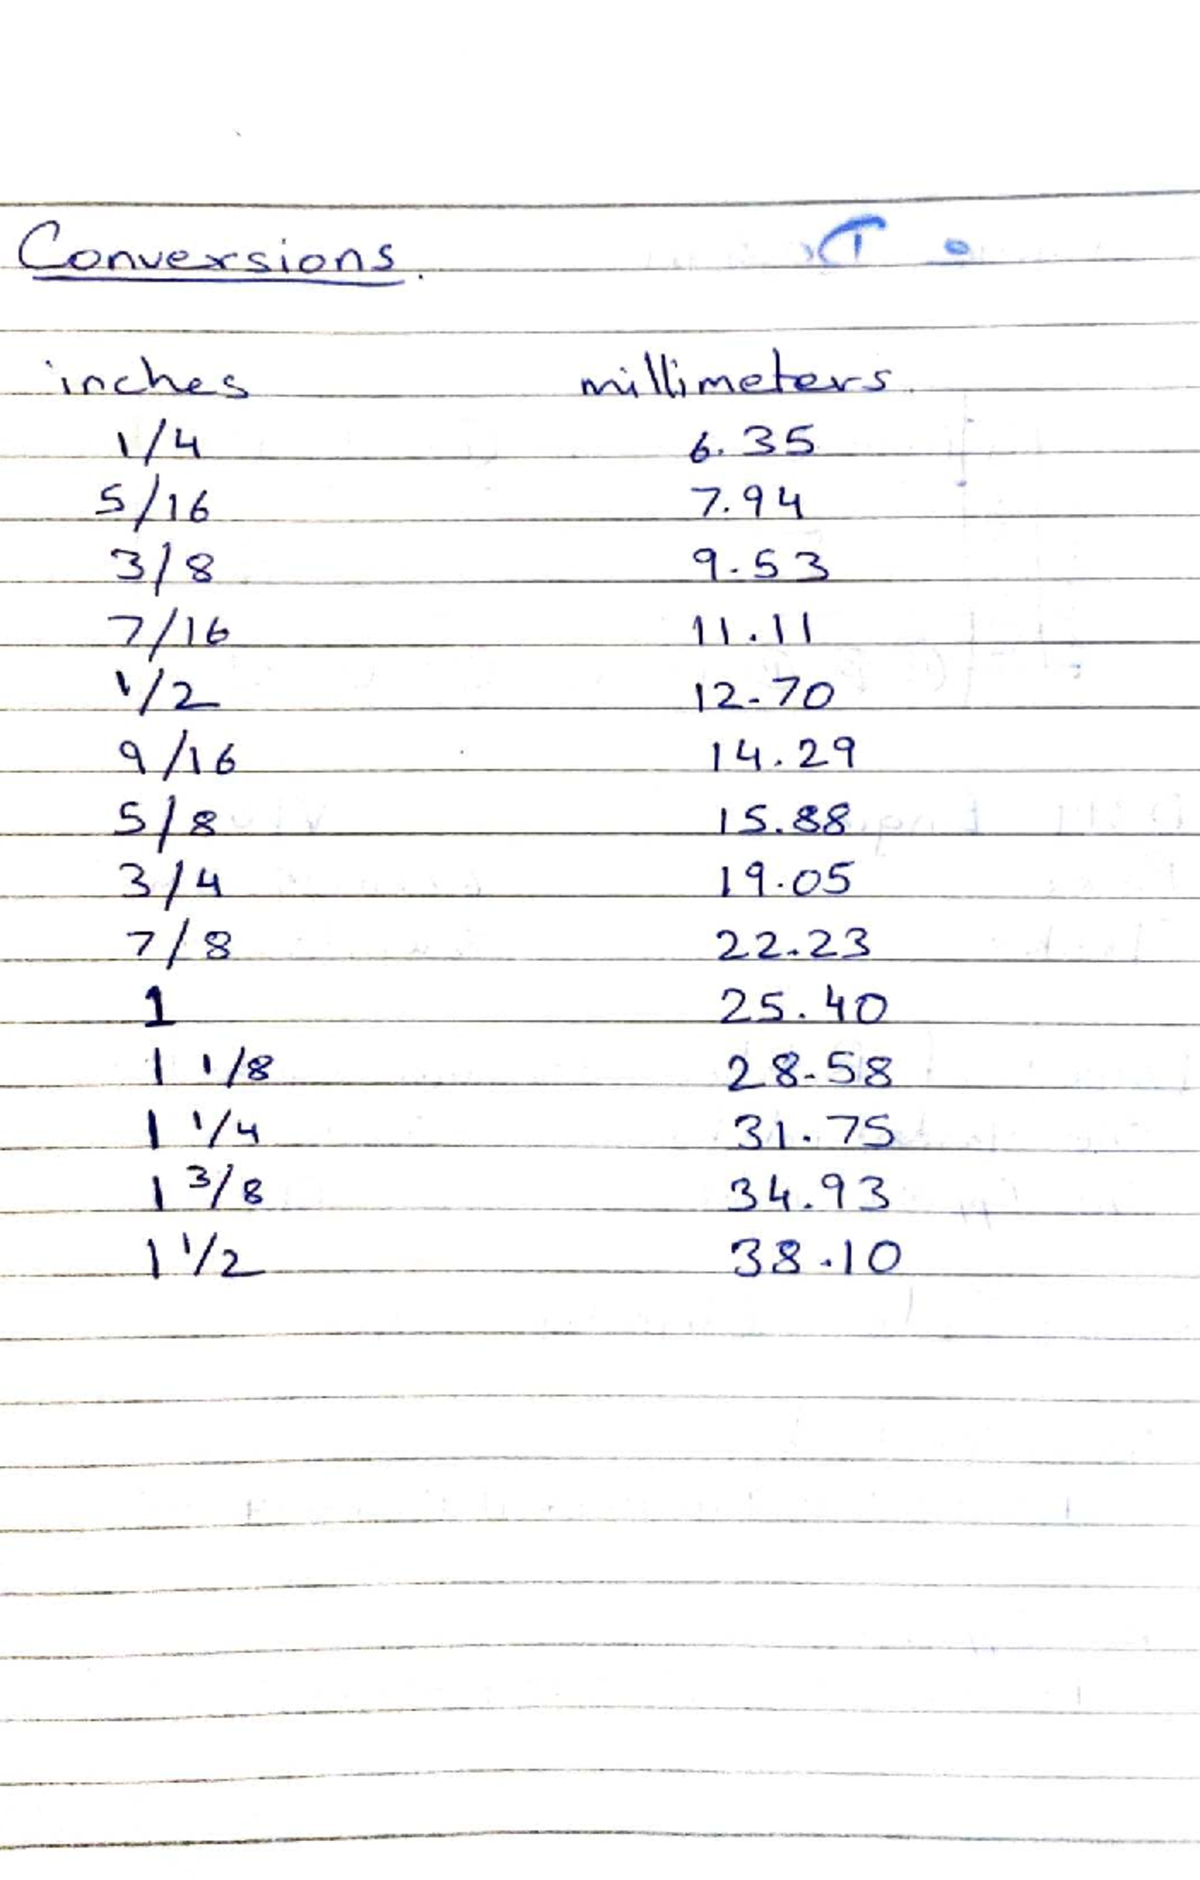 Conversions.
inches millimeters.
1/4 6.35
5/16 7.94
3/8 9.53
7/16 11.11
1/2 12.70
9/16 14.29
5/8 15.88
3/4 19.05
7/8 22.23
1 25.40
1 1/8 28.58
1 1/4 31.75
1 3/8 34.93
1 1/2 38.10